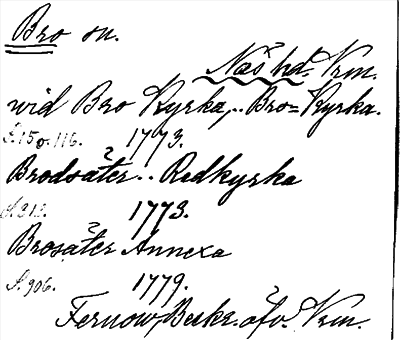 Bro sn.
Näs hd. Vrm.
wid Bro Kyrka,.. Bro=Kyrka.
S.15 o. 116. 1773.
Brodsäter.. Redkyrka
S. 313. 1773.
Brosäter Annexa
S. 906. 1779.
Fernow, Beskr. öfv. Vrm.